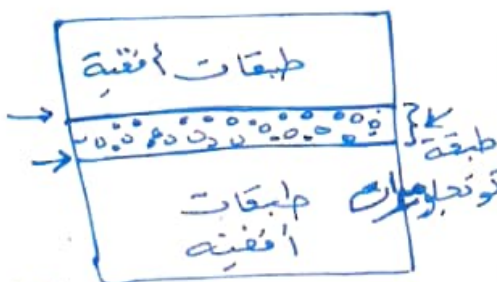 طبقات أفقية
طبقة
كونجلوميرات
طبقات
أفقية